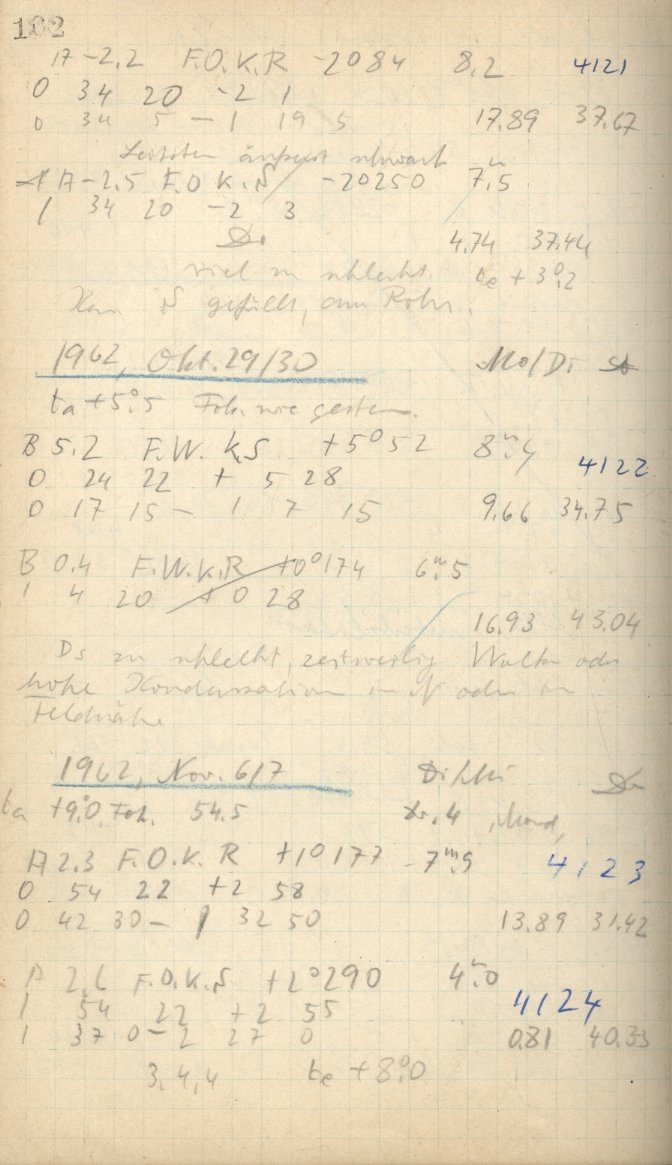 102
A -2.2 F.O.K.R -2084 8.2 4121
0 34 20 -2 1
0 34 5 - 1 19 5 17.89 37.67
äußerst schwach
A -2.5 F.O.K.S -20250 7.5
1 34 20 -2 3
4.74 37.44
viel zu schlecht. te +3°.2
gefüllt, am Rohr.
1962, Okt. 29/30 Mo/Di
ta +5°.5 Fok. wie gestern.
B 5.2 F.W.K.S +5°52 8m.4 4122
0 24 22 + 5 28
0 17 15 - 1 7 15 9.66 34.75
B 0.4 F.W.K.R +0°174 6m.5
1 4 20 +0 28
16.93 43.04
Ds zu schlecht, zeitweilig Wolken oder
hohe Kondensation in N oder in
Feldnähe.
1962, Nov. 6/7 Di/Mi
ta +9°.0 Fok. 54.5 Mond,
A 2.3 F.O.K.R +1°177 7m.9 4123
0 54 22 +2 58
0 42 30 - 1 32 50 13.89 31.42
A 2.6 F.O.K.S +2°290 4m.0
1 54 22 +2 55 4124
1 37 0 - 2 27 0 0.81 40.33
3,4,4 te +8°.0